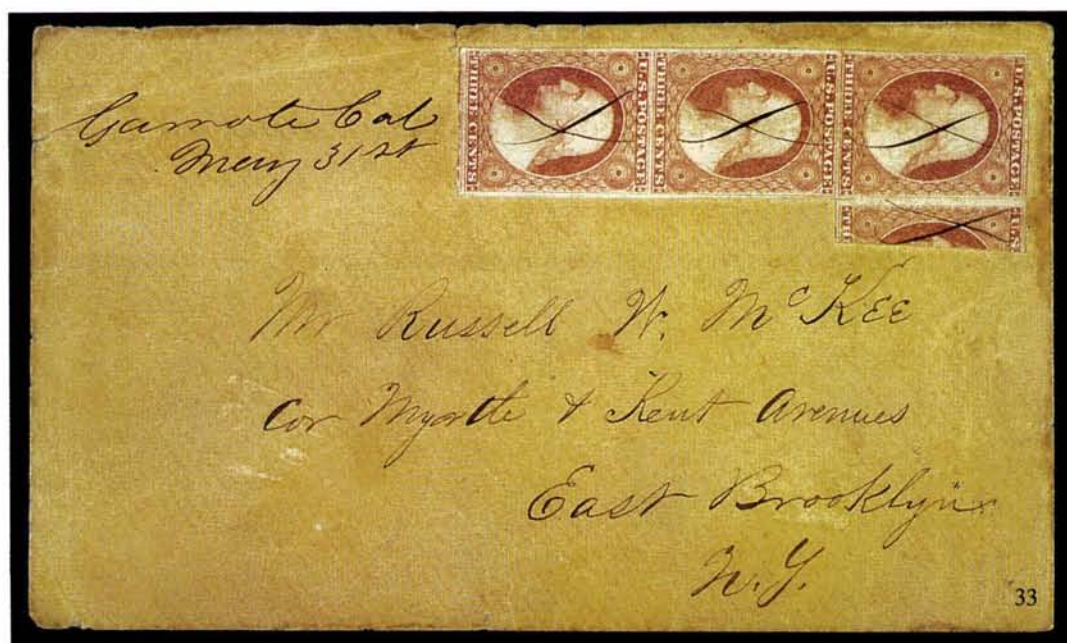 Garrote Cal
May 31st
THREE CENTS. U.S. POSTAGE. THREE CENTS. U.S. POSTAGE. THREE CENTS. U.S. POSTAGE.
U.S.
Mr Russell W. McKee
Cor Myrtle & Kent Avenues
East Brooklyn
N.Y.
33